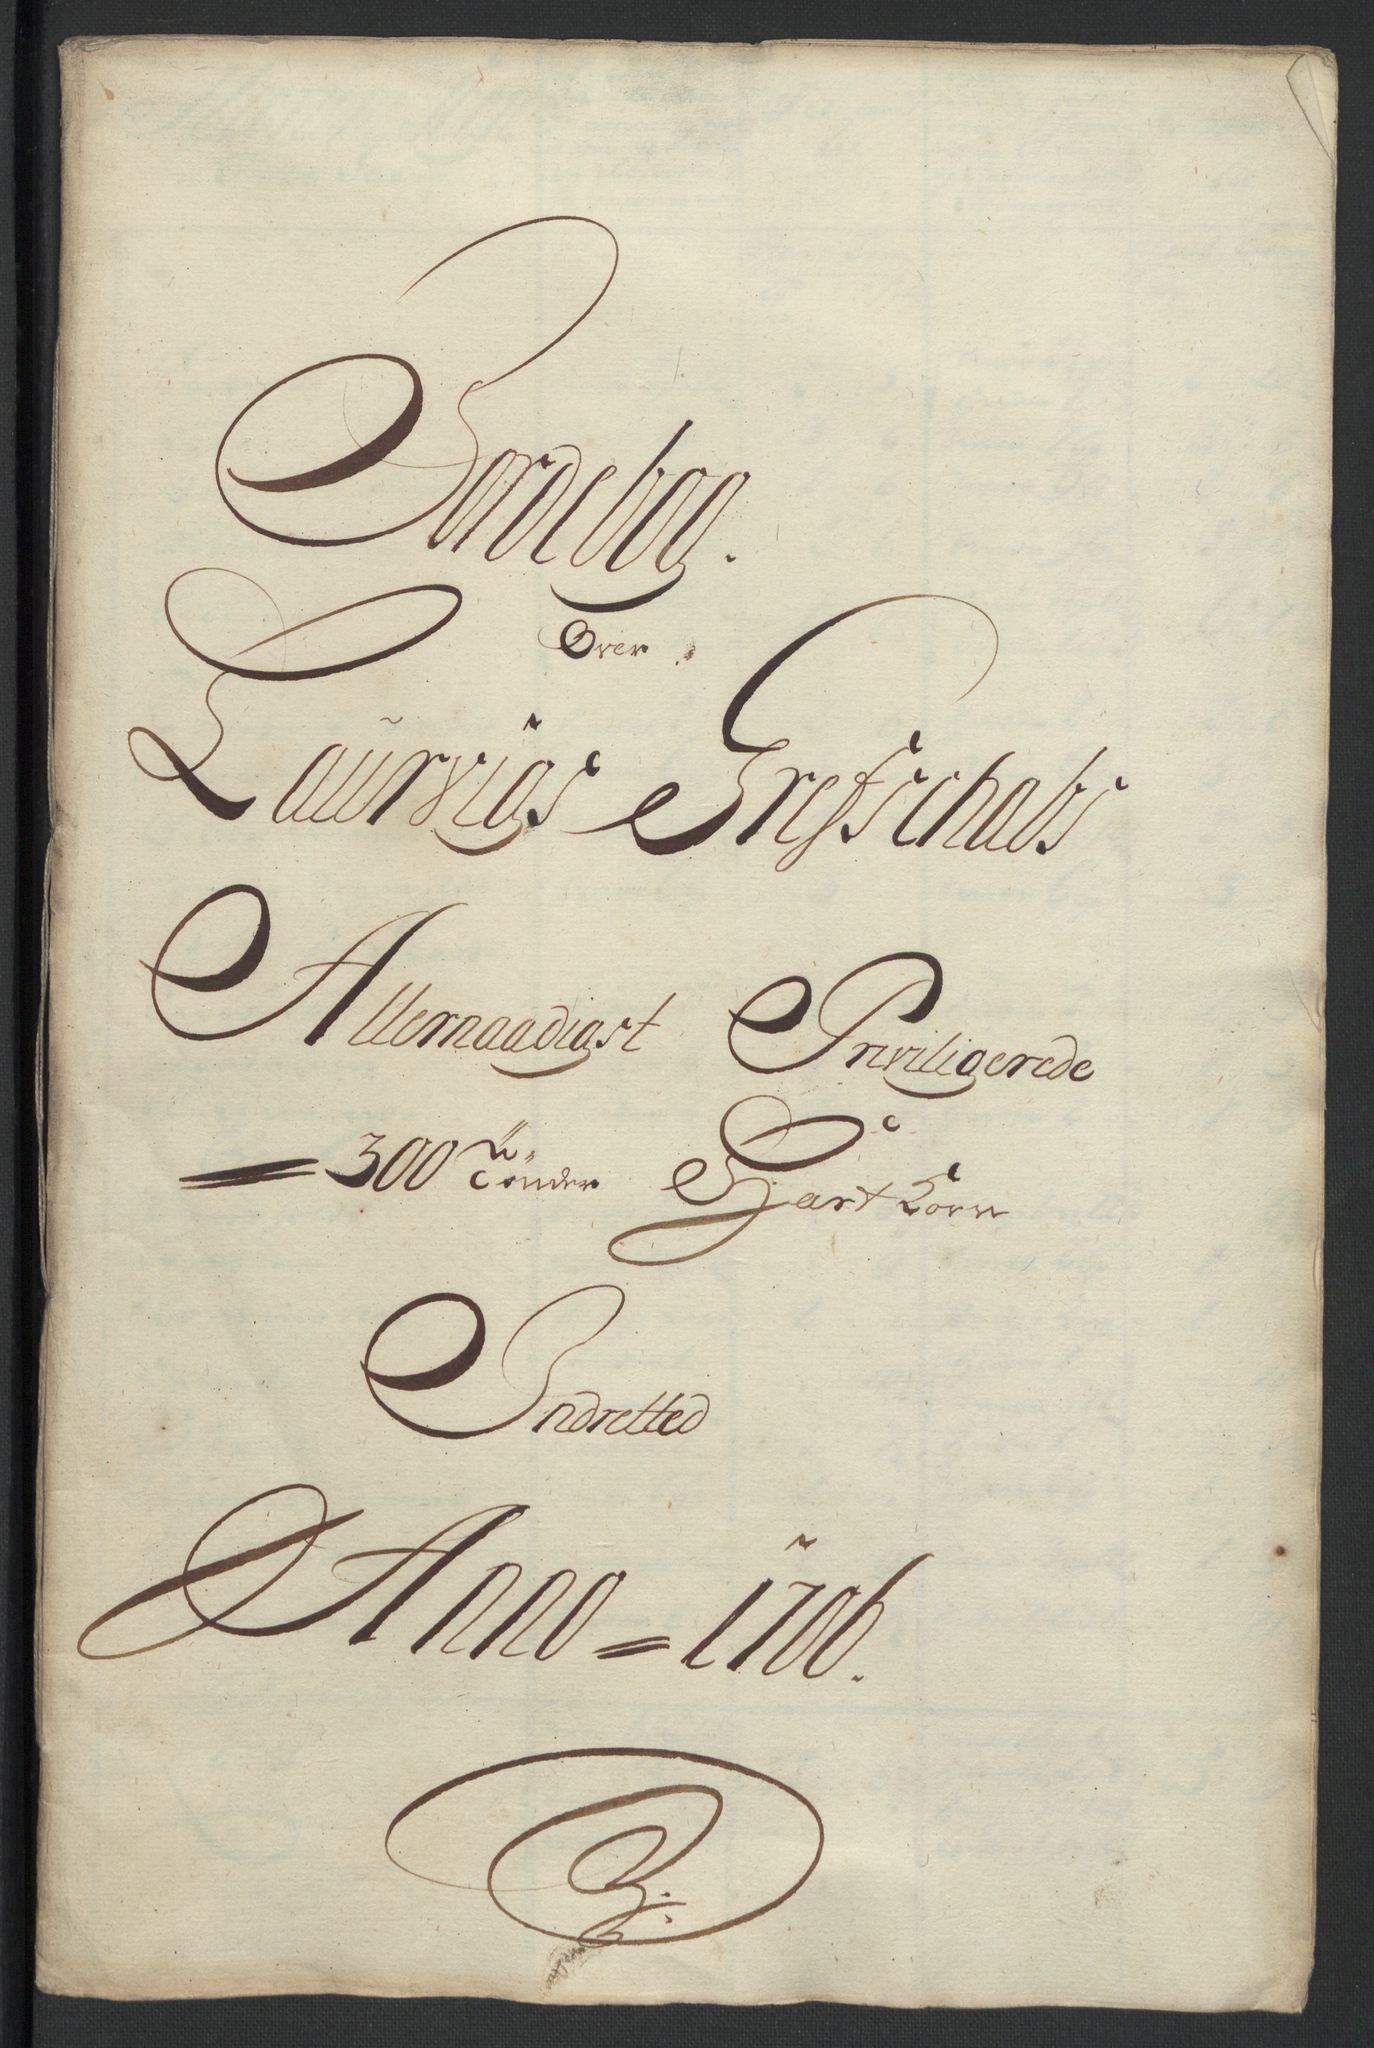 Jordebog.
Over
Laurvigs Grefschabs
Allernaadigst Priviligerede
= 300 Tr Tønder Hart Korn
Indretted
Anno = 1706.